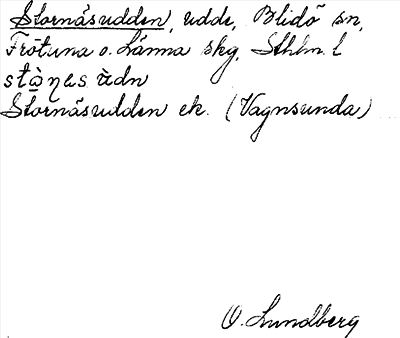 Stornäsudden, udde, Blidö sn,
Frötuna o. Länna skg, Sthlm. l
stò̩ŋɛs ùdn
Stornäsudden ek. (Vagnsunda)
O. Lundberg